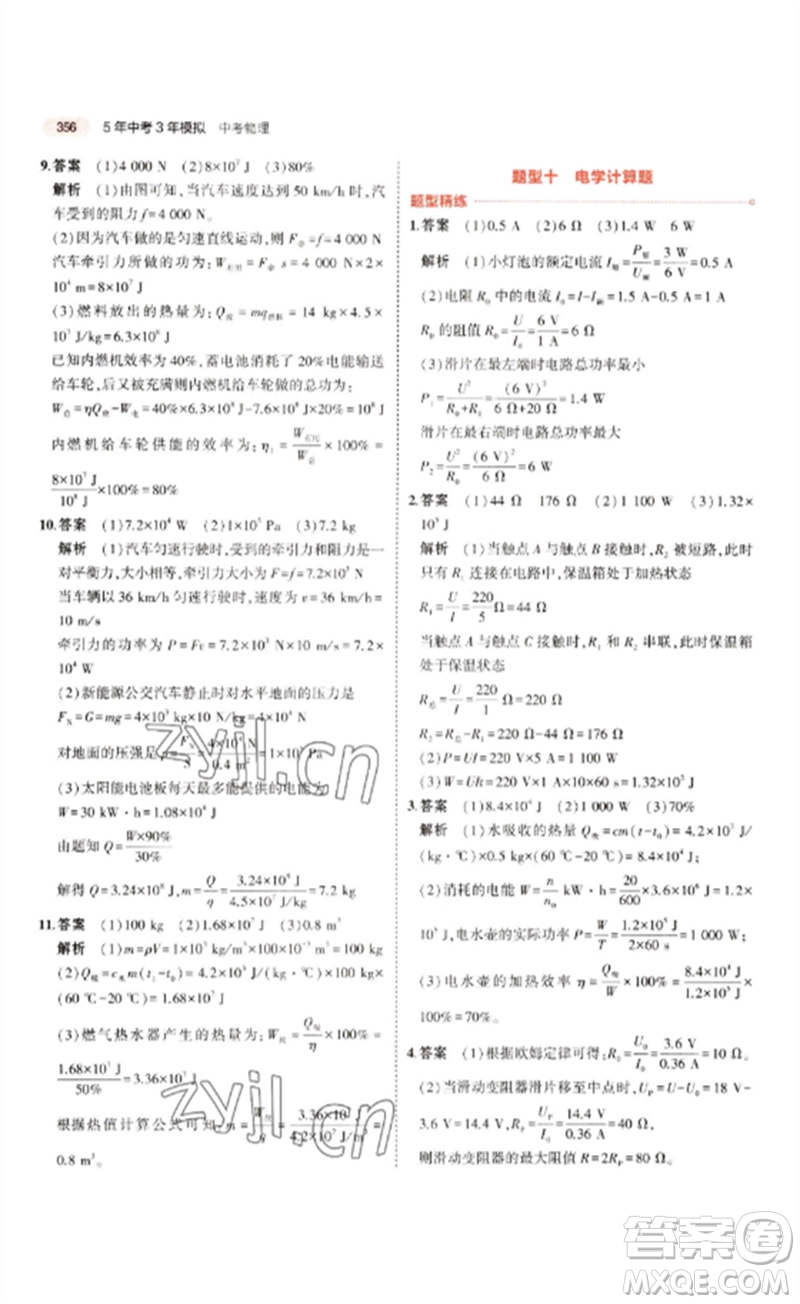 356 5年中考3年模拟 中考物理
9.答案 (1)4 000 N (2)8×10⁷ J (3)80%
解析 (1)由图可知,当汽车速度达到 50 km/h 时,汽
车受到的阻力 f=4 000 N。
(2)因为汽车做的是匀速直线运动,所以 F牵=f=4 000 N
汽车牵引力所做的功为:W有用=F牵 s=4 000 N×2×
10⁴ m=8×10⁷ J
(3)燃料放出的热量为:Q放=mq燃料=14 kg×4.5×
10⁷ J/kg=6.3×10⁸ J
已知内燃机效率为 40%,蓄电池消耗了 20%电能输送
给车轮,又被充满则内燃机给车轮做的总功为:
W总=ηQ放-W电=40%×6.3×10⁸ J-7.6×10⁸ J×20%=10⁸ J
内燃机给车轮供能的效率为:η₁=W有用/W总×100%=
8×10⁷ J/10⁸ J×100%=80%
10.答案 (1)7.2×10⁴ W (2)1×10⁵ Pa (3)7.2 kg
解析 (1)汽车匀速行驶时,受到的牵引力和阻力是一
对平衡力,大小相等。
当车辆以 36 km/h 匀速行驶时,速度为 v=36 km/h=
10 m/s
牵引力的功率为 P=Fv=7.2×10³ N×10 m/s=7.2×
10⁴ W
(2)新能源公交汽车静止时对水平地面的压力是
F_N=G=mg=4×10³ kg×10 N/kg=4×10⁴ N
对地面的压强是 p=F_N/S=4×10⁴ N/0.4 m²=1×10⁵ Pa
(3)太阳能电池板每天最多能提供的电能为
W=30 kW·h=1.08×10⁸ J
由题知 Q=W×90%/30%
解得 Q=3.24×10⁸ J,m=Q/q=3.24×10⁸ J/4.5×10⁷ J/kg=7.2 kg
11.答案 (1)100 kg (2)1.68×10⁷ J (3)0.8 m³
解析 (1)m=ρV=1×10³ kg/m³×100×10⁻³ m³=100 kg
(2)Q吸=c水m(t₁-t₀)=4.2×10³ J/(kg·℃)×100 kg×
(60 ℃-20 ℃)=1.68×10⁷ J
(3)燃气热水器产生的热量为:W放=Q吸/η×100%=
1.68×10⁷ J/50%=3.36×10⁷ J
根据热值计算公式可知,m=W放/q=3.36×10⁷ J/4.2×10⁷ J/m³=
0.8 m³。
题型十 电学计算题
题型精练
1.答案 (1)0.5 A (2)6 Ω (3)1.4 W 6 W
解析 (1)小灯泡的额定电流 I额=P额/U额=3 W/6 V=0.5 A
(2)电阻 R₀ 中的电流 I₀=I-I额=1.5 A-0.5 A=1 A
R₀ 的阻值 R₀=U/I₀=6 V/1 A=6 Ω
(3)滑片在最左端时电路总功率最小
P₁=U²/(R₀+R₁)=(6 V)²/(6 Ω+20 Ω)=1.4 W
滑片在最右端时电路总功率最大
P₂=U²/R₀=(6 V)²/6 Ω=6 W
2.答案 (1)44 Ω 176 Ω (2)1 100 W (3)1.32×
10⁵ J
解析 (1)当触点 A 与触点 B 接触时,R₂ 被短路,此时
只有 R₁ 连接在电路中,保温箱处于加热状态
R₁=U/I=220/5 Ω=44 Ω
当触点 A 与触点 C 接触时,R₁ 和 R₂ 串联,此时保温箱
处于保温状态
R总=U/I=220/1 Ω=220 Ω
R₂=R总-R₁=220 Ω-44 Ω=176 Ω
(2)P=UI=220 V×5 A=1 100 W
(3)W=UIt=220 V×5 A×2×60 s=1.32×10⁵ J
3.答案 (1)8.4×10⁴ J (2)1 000 W (3)70%
解析 (1)水吸收的热量 Q吸=cm(t-t₀)=4.2×10³ J/
(kg·℃)×0.5 kg×(60 ℃-20 ℃)=8.4×10⁴ J
(2)消耗的电能 W=n/n₀ kW·h=20/600×3.6×10⁶ J=1.2×
10⁵ J,电水壶的实际功率 P=W/T=1.2×10⁵ J/2×60 s=1 000 W
(3)电水壶的加热效率 η=Q吸/W×100%=8.4×10⁴ J/1.2×10⁵ J×
100%=70%。
4.答案 (1)根据欧姆定律可得:R₀=U₀/I₀=3.6 V/0.36 A=10 Ω。
(2)当滑动变阻器滑片移至中点时,U_P=U-U₀=18 V-
3.6 V=14.4 V,R_P=U_P/I₀=14.4 V/0.36 A=40 Ω,
则滑动变阻器的最大阻值 R=2R_P=80 Ω。
zyjl.cn
zyjl.cn
答案卷
MXQE.COM